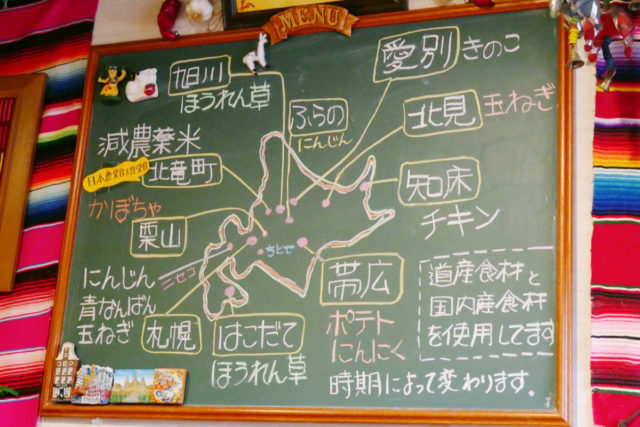 MENU
旭川
ほうれん草
愛別 きのこ
ふらの
にんじん
北見 玉ねぎ
減農薬米
北竜町
知床
チキン
かぼちゃ
栗山
ちとせ
ニセコ
にんじん
青なんばん
玉ねぎ
札幌
はこだて
ほうれん草
帯広
ポテト
にんにく
道産食材と
国内産食材
を使用してます
時期によって変わります。